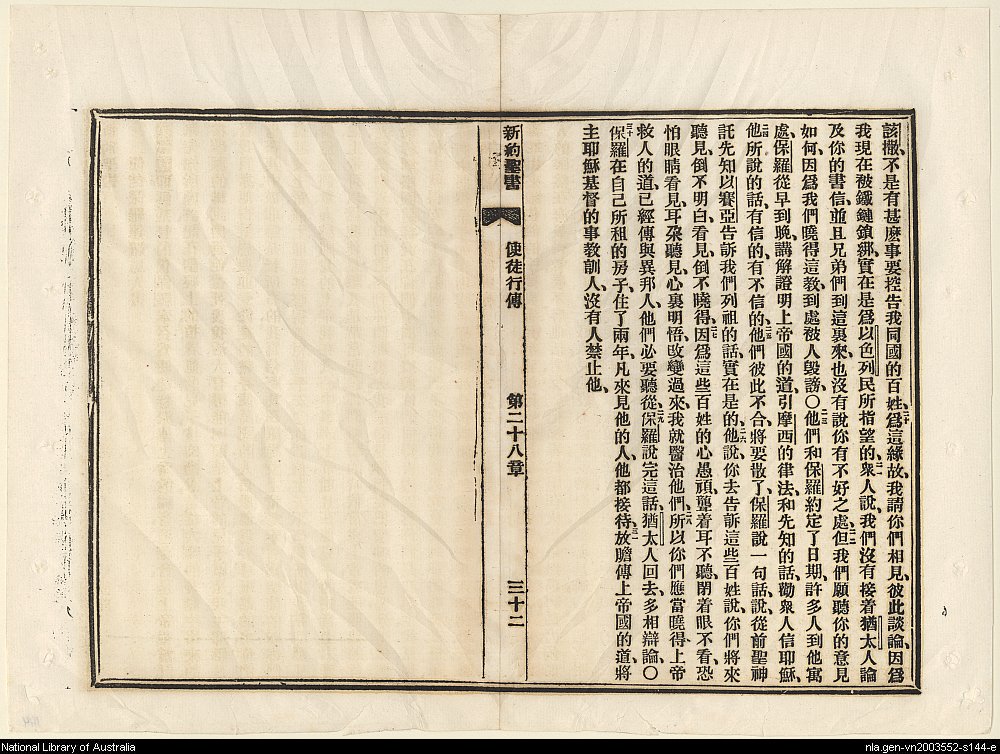 該撒、不是有甚麽事要控告我同國的百姓、二十爲這緣故、我請你們相見、彼此談論、因爲
我現在被鐵鏈鎖綁、實在是爲以色列民所指望的、二一衆人說、我們沒有接着猶太人論
及你的書信、並且兄弟們到這裏來、也沒有說你有不好之處、二二但我們願聽你的意見
如何、因爲我們曉得這教、到處被人毀謗、〇二三他們和保羅約定了日期、許多人到他寓
處、保羅從早到晚、講解證明上帝國的道、引摩西的律法、和先知的話、勸衆人信耶穌、
二四他所說的話、有信的、有不信的、二五他們彼此不合、將要散了、保羅說一句話、說、從前聖神
託先知以賽亞告訴我們列祖的話、實在是的、二六他說、你去告訴這些百姓說、你們將來
聽見、倒不明白、看見、倒不曉得、二七因爲這些百姓的心愚頑、聾着耳不聽、閉着眼不看、恐
怕眼睛看見、耳朶聽見、心裏明悟、改變過來、我就醫治他們、二八所以你們應當曉得、上帝
救人的道、已經傳與異邦人、他們必要聽從、二九保羅說完這話、猶太人回去、多相辯論、〇
三十保羅在自己所租的房子、住了兩年、凡來見他的人、他都接待、三一放膽傳上帝國的道、將
主耶穌基督的事教訓人、沒有人禁止他、
新約聖書 使徒行傳 第二十八章 三十二
National Library of Australia
nla.gen-vn2003552-s144-e